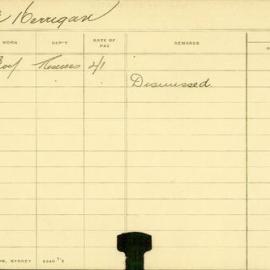 Kerrigan
WORK DEP'T RATE OF PAY REMARKS
Boy 2/1
Dismissed
SYDNEY